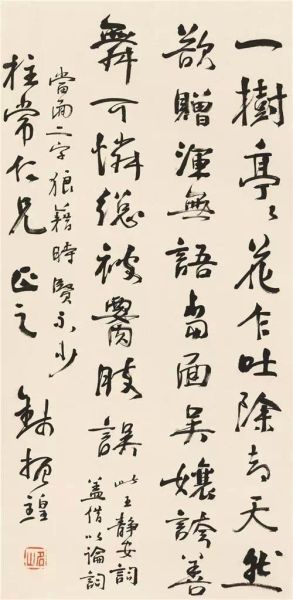 一樹亭〻花乍吐除卻天然
欲贈渾無語當面吳孃誇善
舞可憐總被腰肢誤
此王靜安詞
蓋借以論詞
當面二字狼藉時賢不少
柱常仁兄正之 錢振鍠
名山